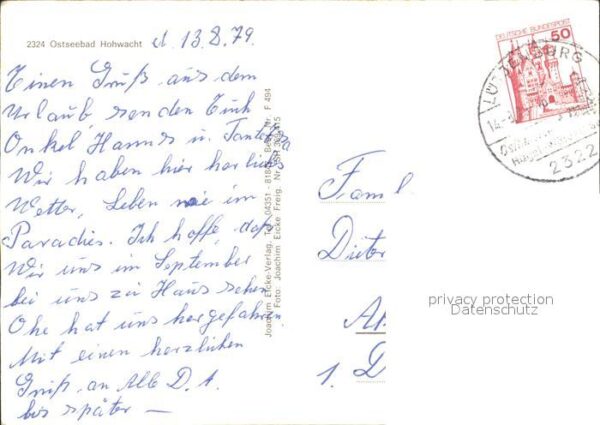 2324 Ostseebad Hohwacht
d. 13.8.79.
Einen Gruß aus dem
Urlaub senden Euch
Onkel Hannes u. Tante
Wir haben hier herlich
Wetter, Leben wie im
Paradies. Ich hoffe, daß
Wir uns im September
bei uns zu Haus sehen
Ohe hat uns hergefahren
Mit einen herzlichen
Gruß an Alle D. A.
bis später —
Joachim Eicke-Verlag, Tel. 04351 - 818
Foto: Joachim Eicke Freig. Nr. SH
F 494
DEUTSCHE BUNDESPOST
50
LÜTJENBURG
2322
Famil
Dieter
1. D
privacy protection
Datenschutz